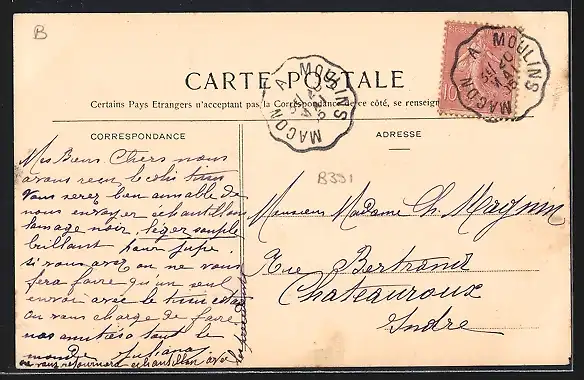 B
CARTE POSTALE
Certains Pays Etrangers n'acceptant pas la Correspondance de ce côté, se renseign
MACON A MOULINS
MACON A MOULINS
10
CORRESPONDANCE
ADRESSE
B331
Mes Biens Chers nous
avons reçu le colis
Vous serez bien aimable de
nous envoyer échantillon
lainage noir, léger souple
brillant pour jupe,
si vous avez ou ne vous
fera faire qu'un seul
envoi avec le
ou vous charge de faire
nos amitiés a tout le
monde Juliana
on vous retournera échantillon avec
les précédents
Monsieur Madame Ch. Magnin
Rue Bertrand
Chateauroux
Indre